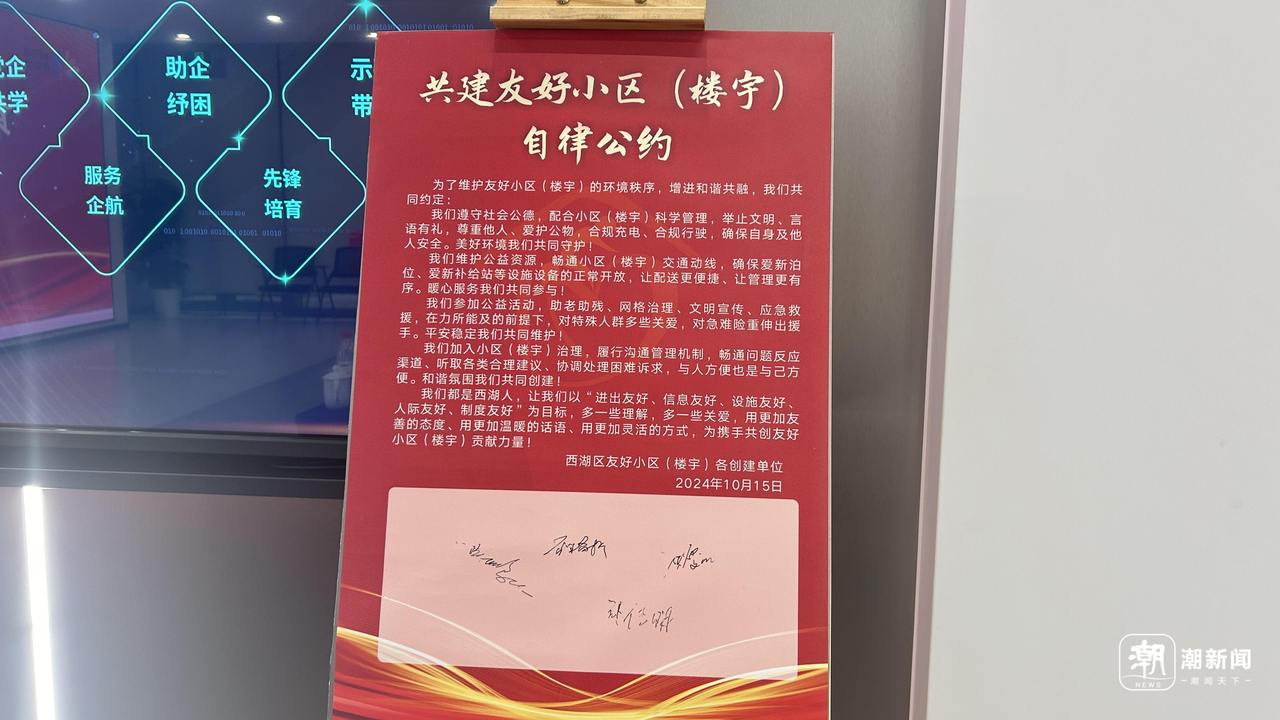 党企
共学
助企
纾困
示
带
服务
企航
先锋
培育
共建友好小区（楼宇）
自律公约
为了维护友好小区（楼宇）的环境秩序，增进和谐共融，我们共
同约定：
我们遵守社会公德，配合小区（楼宇）科学管理，举止文明、言
语有礼，尊重他人、爱护公物，合规充电、合规行驶，确保自身及他
人安全。美好环境我们共同守护！
我们维护公益资源，畅通小区（楼宇）交通动线，确保爱新泊
位、爱新补给站等设施设备的正常开放，让配送更便捷、让管理更有
序。暖心服务我们共同参与！
我们参加公益活动，助老助残、网格治理、文明宣传、应急救
援，在力所能及的前提下，对特殊人群多些关爱，对急难险重伸出援
手。平安稳定我们共同维护！
我们加入小区（楼宇）治理，履行沟通管理机制，畅通问题反应
渠道、听取各类合理建议、协调处理困难诉求，与人方便也是与己方
便。和谐氛围我们共同创建！
我们都是西湖人，让我们以“进出友好、信息友好、设施友好、
人际友好、制度友好”为目标，多一些理解，多一些关爱，用更加友
善的态度、用更加温暖的话语、用更加灵活的方式，为携手共创友好
小区（楼宇）贡献力量！
西湖区友好小区（楼宇）各创建单位
2024年10月15日
潮
NEWS
潮新闻
潮闻天下